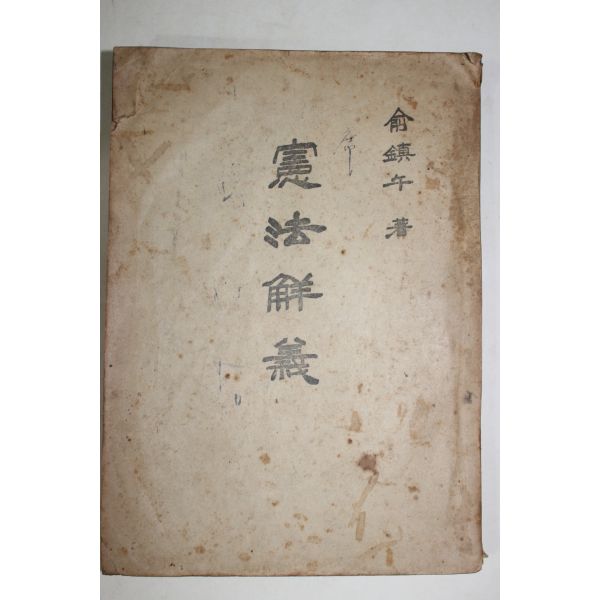 俞鎮午 著
憲法解義